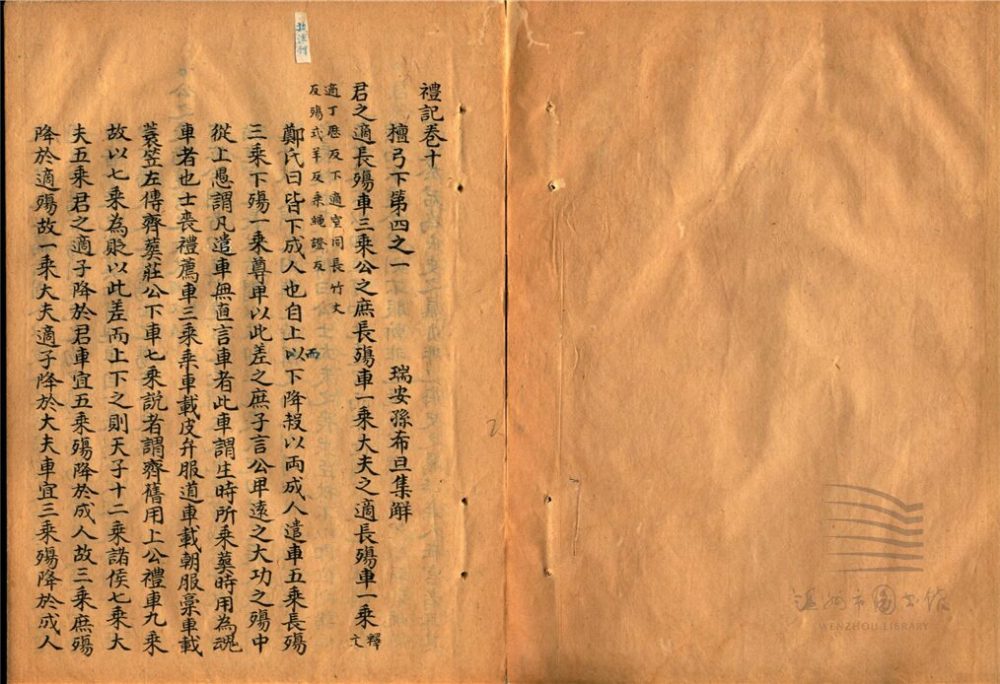 禮記卷十
檀弓下第四之一 瑞安孫希旦集解
君之適長殤車三乘公之庶長殤車一乘大夫之適長殤車一乘 釋文
適丁歷反下適室同長竹丈
反殤式羊反乘繩證反
鄭氏曰皆下成人也自上以下降殺以兩成人遣車五乘長殤
三乘下殤一乘尊卑以此差之庶子言公卑遠之大功之殤中
從上愚謂凡遣車無直言車者此車謂生時所乘葬時用為魂
車者也士喪禮薦車三乘乘車載皮弁服道車載朝服稾車載
蓑笠左傳齊葬莊公下車七乘說者謂齊舊用上公禮車九乘
故以七乘為貶以此差而上下之則天子十二乘諸侯七乘大
夫五乘君之適子降於君車宜五乘殤降於成人故三乘庶殤
降於適殤故一乘大夫適子降於大夫車宜三乘殤降於成人
而
溫州市圖書館
WENZHOU LIBRARY